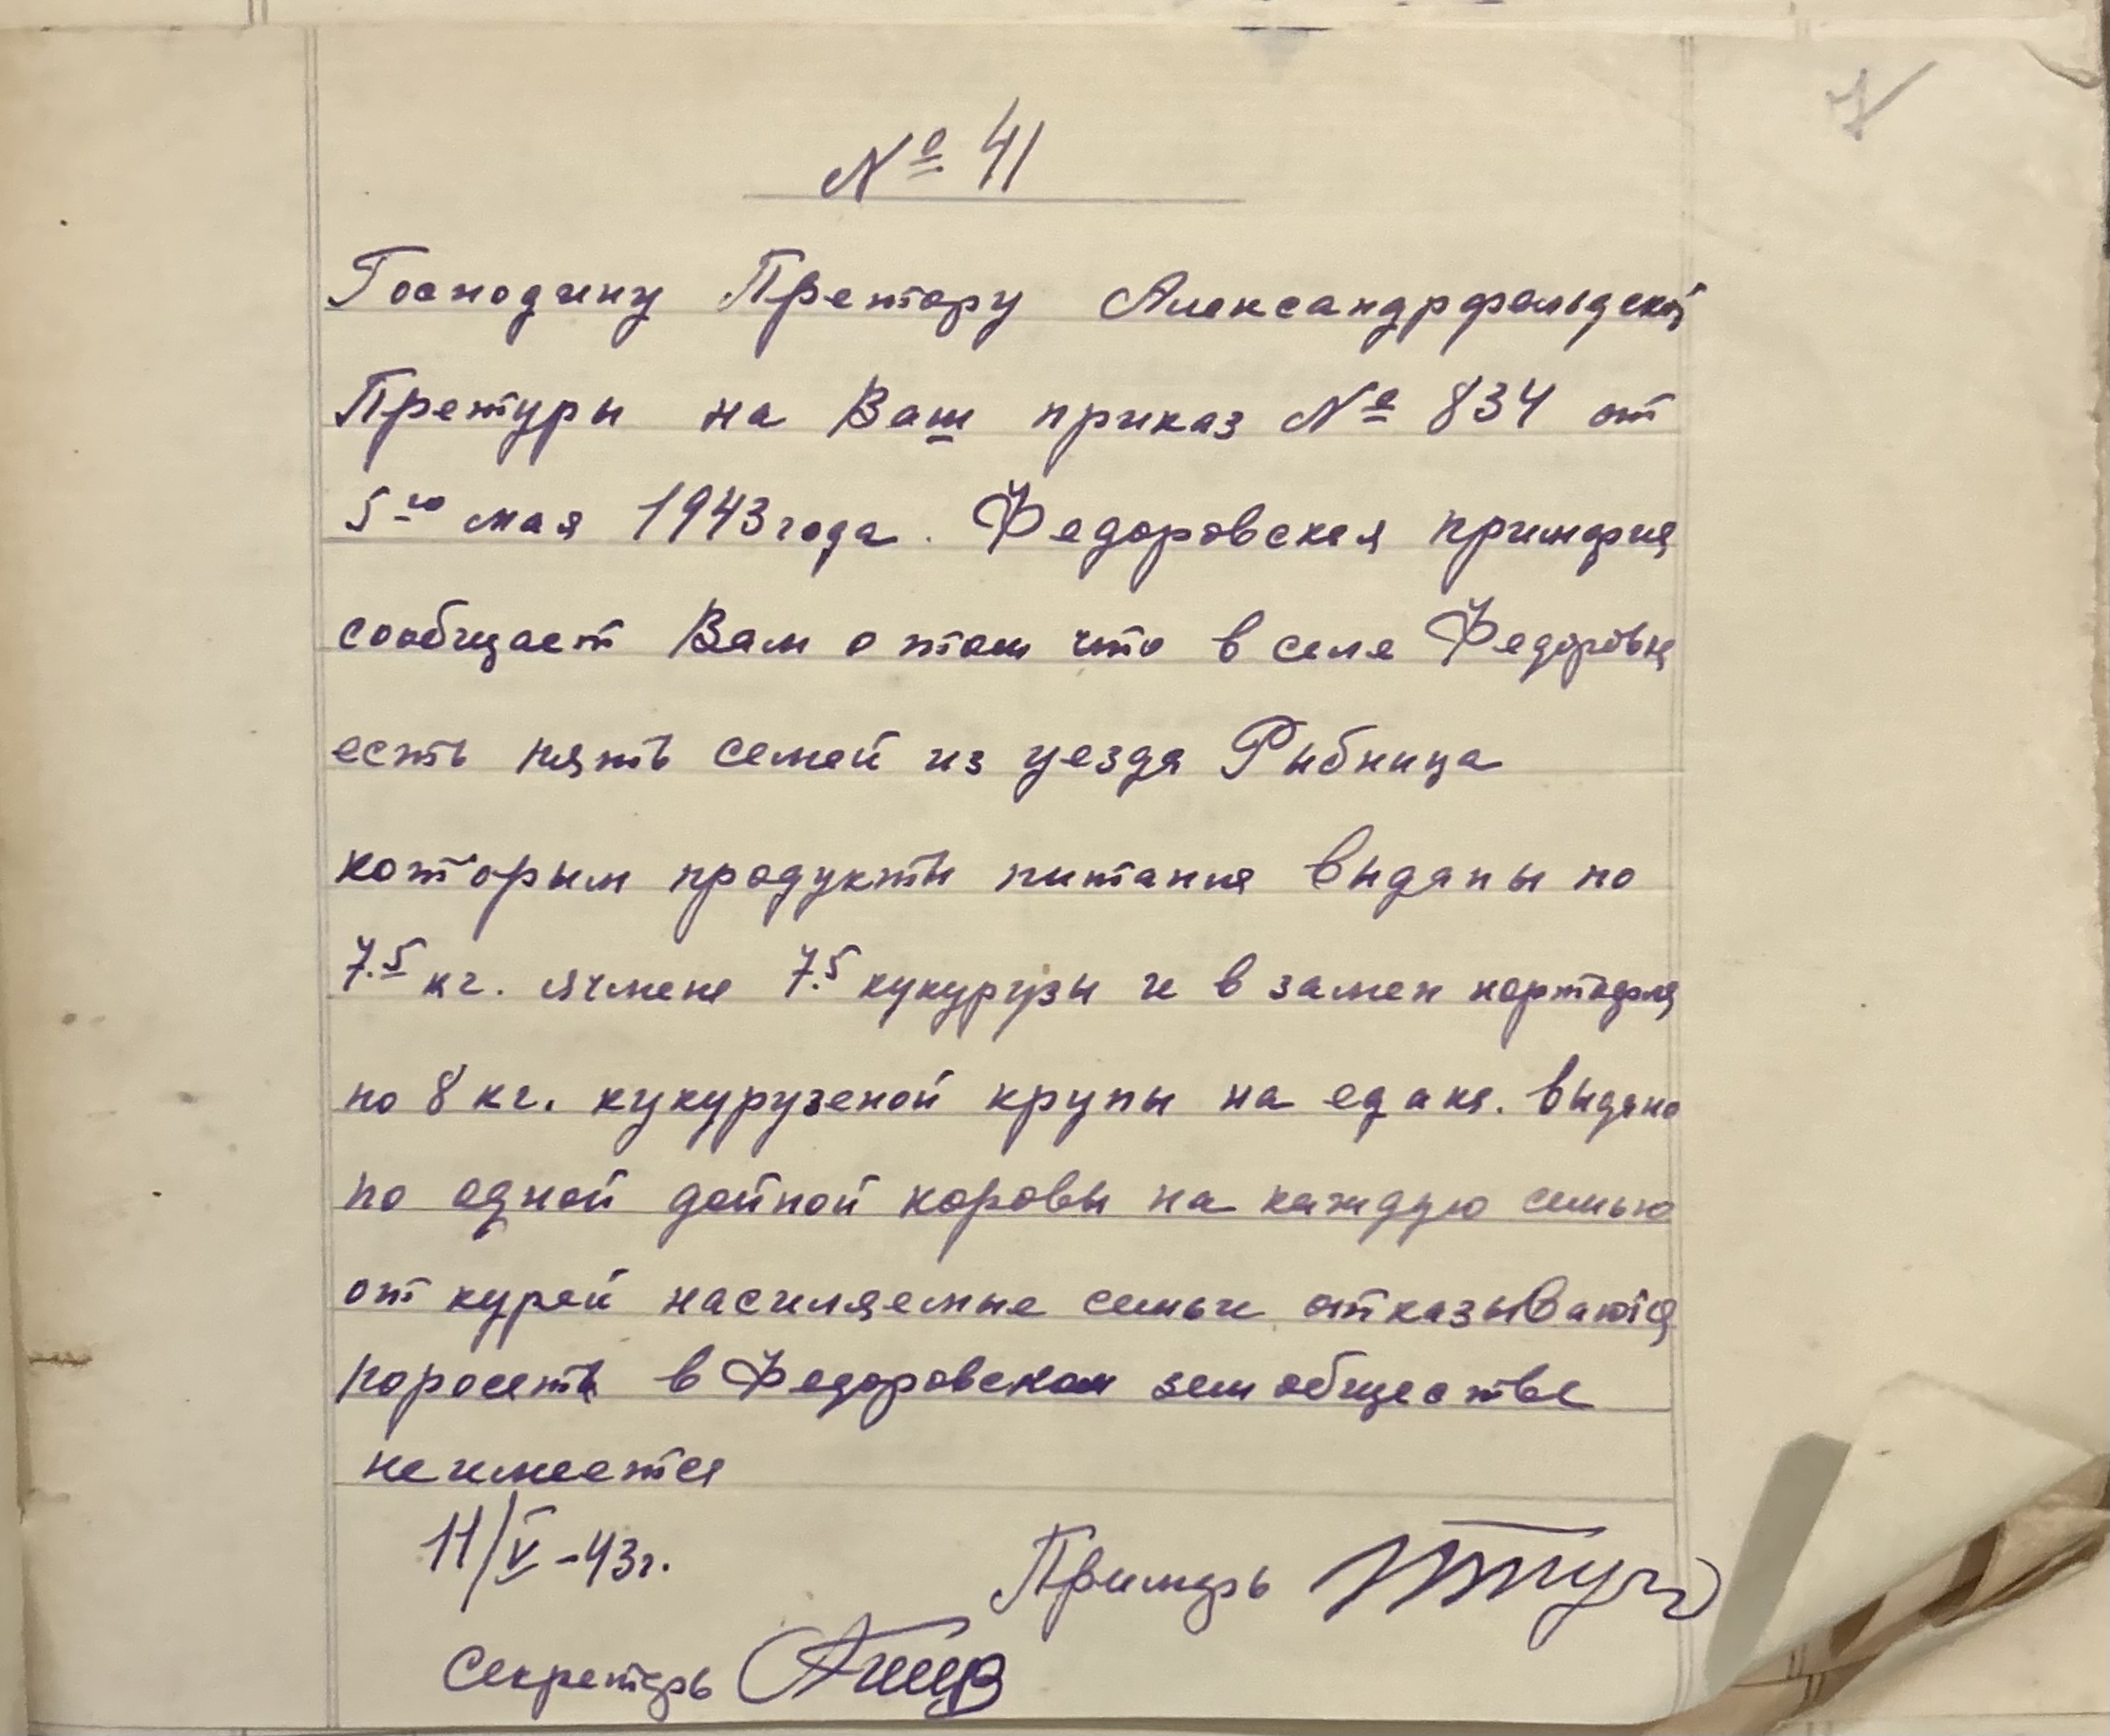 № 41
Господину Претору Александрфельдской
Претуры на Ваш приказ № 834 от
5го мая 1943 года. Федоровская примария
сообщает Вам о том что в селе Федоровка
есть пять семей из уезда Рыбница
которым продукты питания выданы по
7.5 кг. ячменя 7.5 кукурузы и в замен картофля
по 8 кг. кукурузеной крупы на едака. выдано
по одной дойной коровы на каждую семью
от курей насиляемые семьи отказываются
поросеть в Федоровском земобществе
не имеется
11/V-43г. Примарь
Секретарь